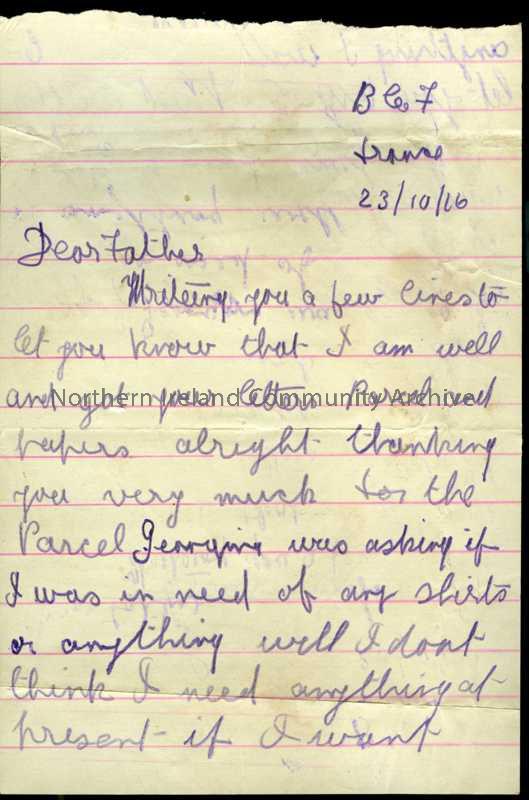 B E F
France
23/10/16
Dear Father
Writing you a few lines to
let you know that I am well
and got your letter Parcel and
Northern Ireland Community Archive
papers alright thanking
you very much for the
Parcel Georgina was asking if
I was in need of any shirts
or anything well I dont
think I need anything at
present if I want